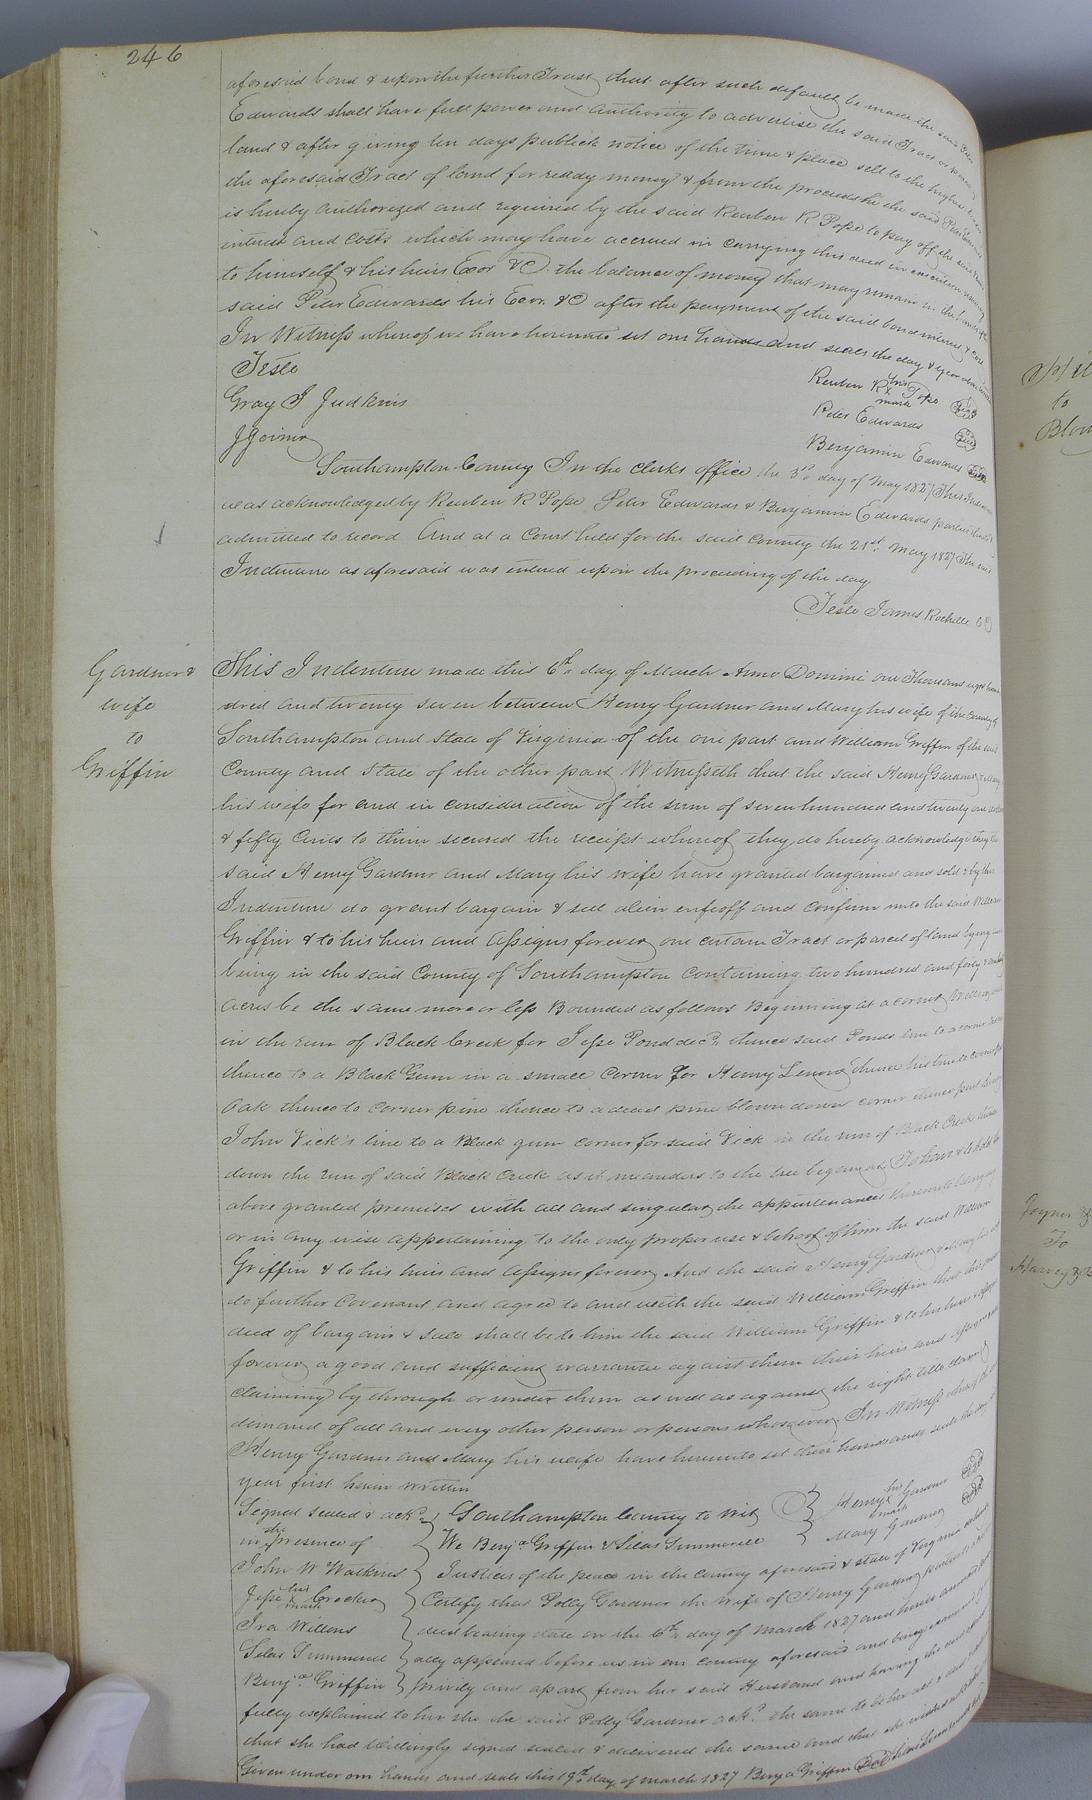 246
aforesaid bond & upon the further Trust that after such default be made the said Peter
Edwards shall have full power and authority to advertise the said Tract or
land & after giving ten days publick notice of the time & place sell to the highest
the aforesaid Tract of land for ready money & from the proceeds he the said
is hereby authorized and required by the said Reuben R Pope to pay off the said
interest and costs which may have accrued in carrying this deed into execution
to himself & his heirs Exor &C. the balance of money that may remain in the hands of the
said Peter Edwards his Exor. &C after the payment of the said bond interest & cost
In Witness whereof we have hereunto set our hands and seals the day & year
Teste
Gray J Judkins
J Joiner
Reuben R his x mark Pope Seal
Peter Edwards Seal
Benjamin Edwards Seal
Southampton County In the clerks office the 3rd day of May 1827 This
was acknowledged by Reuben R Pope Peter Edwards & Benjamin Edwards parties
admitted to record And at a Court held for the said County the 21st. May 1827 The
Indenture as aforesaid was entered upon the proceeding of the day
Teste James Rochelle CC
Gardner &
wife
to
Griffin
This Indenture made this 6th. day of March Anno Domini one Thousand eight hun
dred and twenty seven between Henry Gardner and Mary his wife of the County of
Southampton and State of Virginia of the one part and William Griffin of the said
County and State of the other part Witnesseth that the said Henry Gardner & Mary
his wife for and in consideration of the sum of seven hundred and twenty one
& fifty Cents to them secured the receipt whereof they do hereby acknowledge they the
said Henry Gardner and Mary his wife have granted bargained and sold & by this
Indenture do grant bargain & sell alien enfeoff and confirm unto the said William
Griffin & to his heirs and Assigns forever one certain Tract or parcel of land lying
being in the said County of Southampton containing two hundred and forty
acres be the same more or less Bounded as follows Beginning at a corner
in the run of Black Creek for Jesse Pond decd. thence said Ponds line to a corner
thence to a Black Gum in a small Corner for Henry thence his line to corner
Oak thence to corner pine thence to a dead pine blown down corner thence
John Vick's line to a Black gum corner for said Vick in the run of Black Creek thence
down the run of said Black Creek as it meanders to the tree began at To have & to hold the
above granted premises with all and singular the appurtenances thereunto belonging
or in any wise appertaining to the only proper use & behoof of him the said William
Griffin & to his heirs and Assigns forever And the said Henry Gardner & Mary his
do further Covenant and agree to and with the said William Griffin that this
deed of bargain & sale shall be to him the said William Griffin & to his heirs &
forever a good and sufficient warrantee against them their heirs and assigns
claiming by through or under them as well as against the right title claim &
demand of all and every other person or persons whosoever. In Witness whereof the
Henry Gardner and Mary his wife have hereunto set their hands and seals the day &
year first herein written
Signed sealed & ackd.
in the presence of
John W Watkins
Jesse his x mark Crocker
Ira Willons
Silas Summerell
Benja. Griffin
Henry his x mark Gardner Seal
Mary Gardner Seal
Southampton County to wit
We Benja Griffin & Silas Summerell
Justices of the peace in the County aforesaid & state of Virginia
Certify that Polly Gardner the wife of Henry Gardner
deed bearing date on the 6th. day of March 1827 and
ally appeared before us in our County aforesaid and being
privily and apart from her said Husband and having the deed
fully explained to her she the said Polly Gardner ackd. the same to be her act & deed
that she had Willingly signed sealed & delivered the same and that she wished not
Given under our hands and seals this 19th. day of March 1827 Benja Griffin Seal
to
Joyner &
To
Harvey